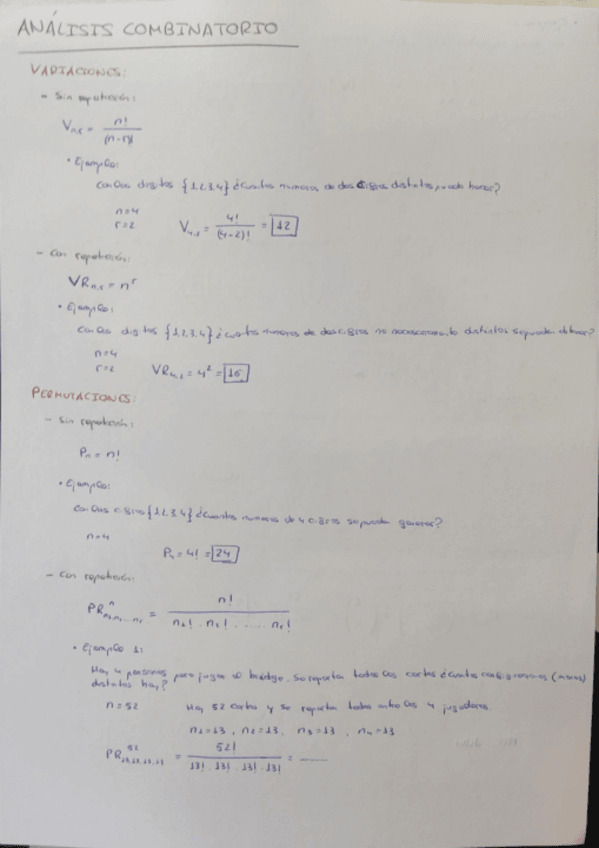 ANÁLISIS COMBINATORIO
VARIACIONES:
- Sin repetición:
V n,r = n! / (n-r)!
• Ejemplo:
Con los dígitos {1,2,3,4} ¿cuántos números de dos cifras distintas puedo hacer?
n=4
r=2 V 4,2 = 4! / (4-2)! = 12
- Con repetición:
VR n,r = n^r
• Ejemplo:
Con los dígitos {1,2,3,4} ¿cuántos números de dos cifras no necesariamente distintas se pueden obtener?
n=4
r=2 VR 4,2 = 4² = 16
PERMUTACIONES:
- Sin repetición:
Pn = n!
• Ejemplo:
Con las cifras {1,2,3,4} ¿cuántos números de 4 cifras se pueden generar?
n=4
P4 = 4! = 24
- Con repetición:
PR^n n1,n2,...nr = n! / n1! · n2! · ..... · nr!
• Ejemplo 1:
Hay 4 personas para jugar al bridge. Se reparten todas las cartas ¿cuántas configuraciones (manos)
distintas hay?
n = 52 Hay 52 cartas y se reparten todas entre los 4 jugadores.
n1=13, n2=13, n3=13, n4=13
PR^52 13,13,13,13 = 52! / 13! · 13! · 13! · 13! = ......